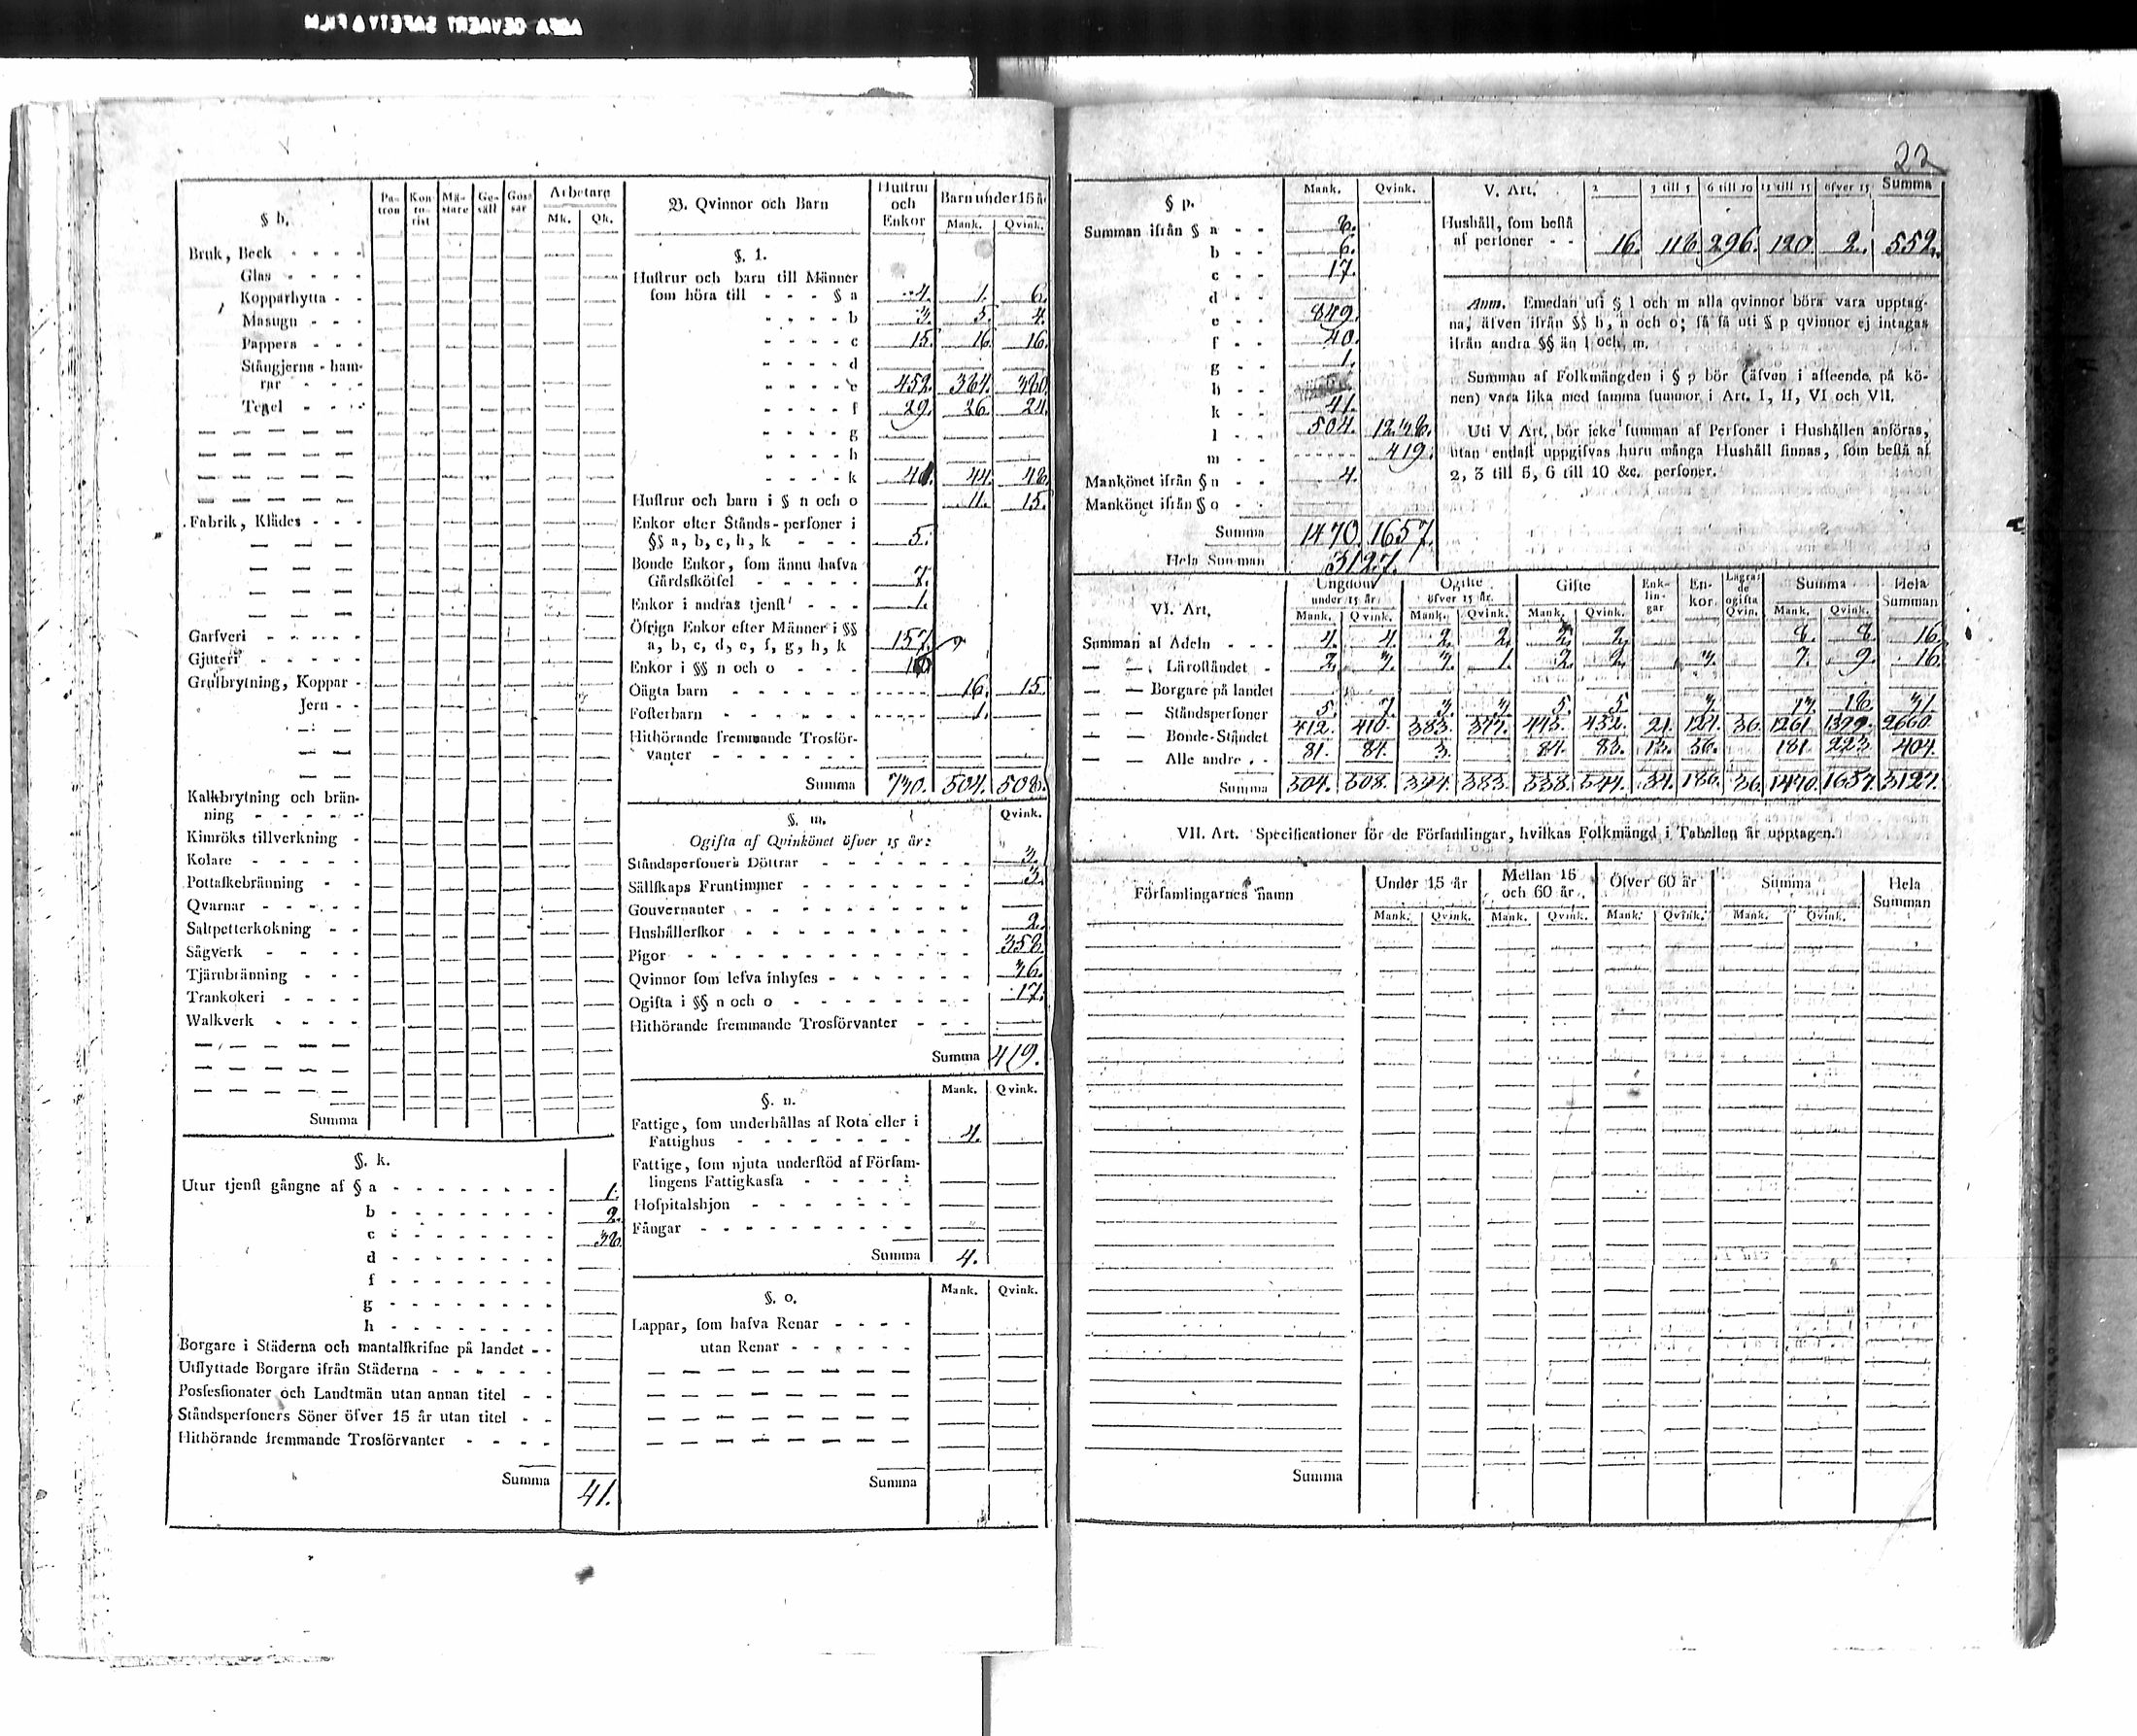 22
§ h.
Pa-tron Kon-to-rist Mä-stare Ge-säll Gos-sar Arbetare
Mk. Qk.
Bruk, Beck - - - -
Glas - - - -
Kopparhytta - -
Masugn - - -
Pappers - - -
Stångjerns-ham-
rar - - - -
Tegel - - - -
Fabrik, Klädes - - -
Garfveri - - - - -
Gjuteri - - - - -
Grufbrytning, Koppar -
Jern - -
Kalkbrytning och brän-
ning - - - - -
Kimröks tillverkning -
Kolare - - - - -
Pottaskebränning - -
Qvarnar - - - - -
Saltpetterkokning - -
Sågverk - - - -
Tjärubränning - - -
Trankokeri - - - -
Walkverk - - - -
Summa
§. k.
Utur tjenst gångne af § a - - - - - - - - 1.
b - - - - - - - - 2.
c - - - - - - - - 38.
d - - - - - - - -
f - - - - - - - -
g - - - - - - - -
h - - - - - - - -
Borgare i Städerna och mantalskrifne på landet - -
Utflyttade Borgare ifrån Städerna - - - - - -
Possessionater och Landtmän utan annan titel - -
Ståndspersoners Söner öfver 15 år utan titel - -
Hithörande fremmande Trosförvanter - - - -
Summa 41.
B. Qvinnor och Barn
Hustrur och Enkor Barn under 15 år
Mank. Qvink.
§. l.
Hustrur och barn till Männer
som höra till - - - § a 4. 1. 6.
- - - - b 3. 5. 4.
- - - - c 15. 16. 16.
- - - - d
- - - - e 452. 384. 380.
- - - - f 29. 26. 24.
- - - - g
- - - - h
- - - - k 44. 48.
Hustrur och barn i § n och o 11. 15.
Enkor efter Stånds-personer i
§§ a, b, c, h, k - - - 5.
Bonde Enkor, som ännu hafva
Gårdsskötsel - - - - - 7.
Enkor i andras tjenst - - - 1.
Öfriga Enkor efter Männer i §§
a, b, c, d, e, f, g, h, k 157.
Enkor i §§ n och o - - -
Oägta barn - - - - - - 16. 15.
Fosterbarn - - - - - - 1.
Hithörande fremmande Trosför-
vanter - - - - - - -
Summa 730. 504. 508.
§. m.
Qvink.
Ogifta af Qvinkönet öfver 15 år:
Ståndspersoners Döttrar - - - - - - - 3.
Sällskaps Fruntimmer - - - - - - - - 3.
Gouvernanter - - - - - - - - - -
Hushållerskor - - - - - - - - - - 2.
Pigor - - - - - - - - - - - - - 358.
Qvinnor som lefva inhyses - - - - - - - 36.
Ogifta i §§ n och o - - - - - - - - 17.
Hithörande fremmande Trosförvanter - - -
Summa 419.
§. n.
Mank. Qvink.
Fattige, som underhållas af Rota eller i
Fattighus - - - - - - - - 4.
Fattige, som njuta understöd af Försam-
lingens Fattigkassa - - - - -
Hospitalshjon - - - - - - -
Fångar - - - - - - - - - -
Summa 4.
§. o.
Mank. Qvink.
Lappar, som hafva Renar - - - -
utan Renar - - - - - -
Summa
§ p.
Mank. Qvink.
Summan ifrån § a - - 8.
b - - 6.
c - - 17.
d - -
e - - 849.
f - - 40.
g - - 1.
h - -
k - - 41.
l - - 504. 1238.
m - - 419.
Mankönet ifrån § n - - 4.
Mankönet ifrån § o - -
Summa 1470. 1657.
Hela Summan 3127.
V. Art. 2 3 till 5 6 till 10 11 till 15 öfver 15 Summa
Hushåll, som bestå
af personer - - 16. 118. 296. 120. 2. 552.
Anm. Emedan uti § l och m alla qvinnor böra vara upptag-
na, äfven ifrån §§ h, n och o; så få uti § p qvinnor ej intagas
ifrån andra §§ än l och m.
Summan af Folkmängden i § p bör (äfven i afseende på kö-
nen) vara lika med samma summor i Art. I, II, VI och VII.
Uti V Art. bör icke summan af Personer i Hushållen anföras,
utan endast uppgifvas huru många Hushåll finnas, som bestå af
2, 3 till 5, 6 till 10 &c. personer.
VI. Art.
Ungdom under 15 år. Ogifte öfver 15 år. Gifte Enk-lin-gar En-kor Lägra-de ogifta Qvin. Summa Hela Summan
Mank. Qvink. Mank. Qvink. Mank. Qvink. Mank. Qvink.
Summan af Adeln - - - 4. 4. 2. 2. 2. 2. 8. 8. 16.
— — Läroståndet - 2. 3. 3. 1. 2. 2. 3. 7. 9. 16.
— — Borgare på landet
— — Ståndspersoner 5. 7. 3. 3. 5. 5. 3. 13. 18. 31.
— — Bonde-Ståndet 412. 410. 383. 377. 445. 452. 21. 124. 36. 1261. 1399. 2660.
— — Alle andre - - 81. 84. 3. 84. 83. 13. 56. 181. 223. 404.
Summa 504. 508. 394. 383. 538. 544. 34. 186. 36. 1470. 1657. 3127.
VII. Art. Specificationer för de Församlingar, hvilkas Folkmängd i Tabellen är upptagen.
Församlingarnes namn Under 15 år Mellan 15 och 60 år Öfver 60 år Summa Hela Summan
Mank. Qvink. Mank. Qvink. Mank. Qvink. Mank. Qvink.
Summa